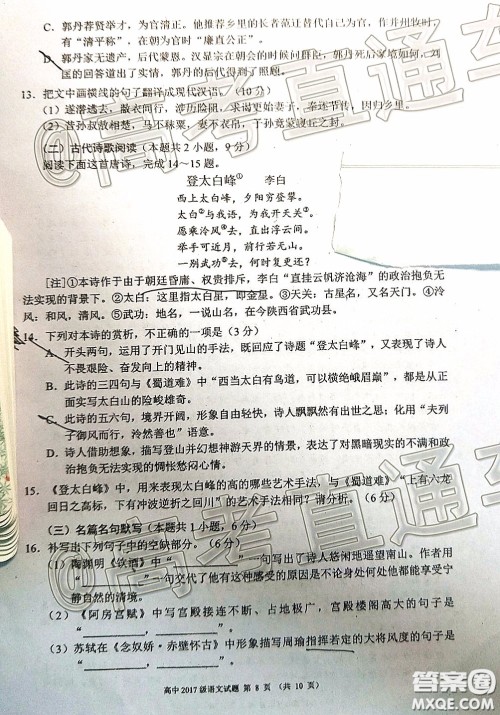 C. 郭丹荐贤举才，为官清正。他推荐乡里的长者范迁替代自己为官，作并州牧时
有“清平称”，在朝为官时“廉直公正”。
D. 郭丹家无遗产，后代蒙恩。汉显宗在朝会的时候问群臣，郭丹死后家境如何，刘
匡的回答道出了实情，郭丹的后代得到了照顾。
13. 把文中画横线的句子翻译成现代汉语。（10分）
（1）遂潜逃去，敝衣间行，涉历险阻，求谒更始妻子，奉还节传，因归乡里。
（2）昔孙叔敖相楚，马不秣粟，妻不衣帛，子孙竟蒙寝丘之封。
（二）古代诗歌阅读（本题共2小题，9分）
阅读下面这首唐诗，完成14～15题。
登太白峰① 李白
西上太白峰，夕阳穷登攀。
太白②与我语，为我开天关③。
愿乘泠风④去，直出浮云间。
举手可近月，前行若无山。
一别武功⑤去，何时复更还？
[注]①本诗作于由于朝廷昏庸、权贵排斥，李白“直挂云帆济沧海”的政治抱负无
法实现的背景下。②太白：这里指太白星，即金星。③天关：古星名，又名天门。④泠
风：和风，清风。⑤武功：地名，一说山名，在今陕西省武功县。
14. 下列对本诗的赏析，不正确的一项是（3分）
A. 开头两句，运用了开门见山的手法，既回应了诗题“登太白峰”，又表现了诗人
不畏艰险、奋发向上的精神。
B. 此诗的三四句与《蜀道难》中“西当太白有鸟道，可以横绝峨眉巅”，都是从正
面实写太白山的险峻雄奇。
C. 此诗的五六句，境界开阔，形象自由轻快，诗人飘飘然有出世之思；化用“夫列
子御风而行，泠然善也”语意。
D. 诗人借助想象，描写登山并幻想神游天界的情景，表现了对黑暗现实的不满和政
治抱负无法实现的惆怅愁闷心情。
15. 《登太白峰》中，用来表现太白峰的高的哪些艺术手法，与《蜀道难》“上有六龙
回日之高标，下有冲波逆折之回川”的艺术手法相似？请分析。（6分）
（三）名篇名句默写（本题共1小题，6分）
16. 补写出下列句子中的空缺部分。（6分）
（1）陶渊明《饮酒》中“________，________”写出了诗人悠闲地遥望南山。作者
可能借此交代了他有这种感受的原因是不在乎外在的世界，而在乎内心能感受到
静自然的清境。
（2）《阿房宫赋》中描写宫殿接连不断、占地极广，宫殿楼阁高大的句子是
“________，________”。
（3）苏轼在《念奴娇·赤壁怀古》中形象描写周瑜指挥若定的大家风度的句子是
“________，________”。
高中2017级语文试题 第8页（共10页）
@高考直通车
答案圈
MXQE.COM